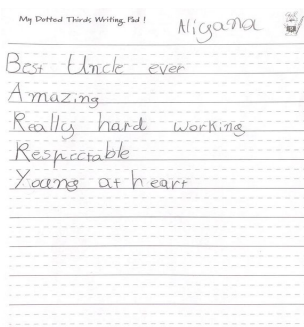 My Dotted Thirds Writing Pad !
Aliyana
Best Uncle ever
Amazing
Really hard working
Respectable
Young at heart